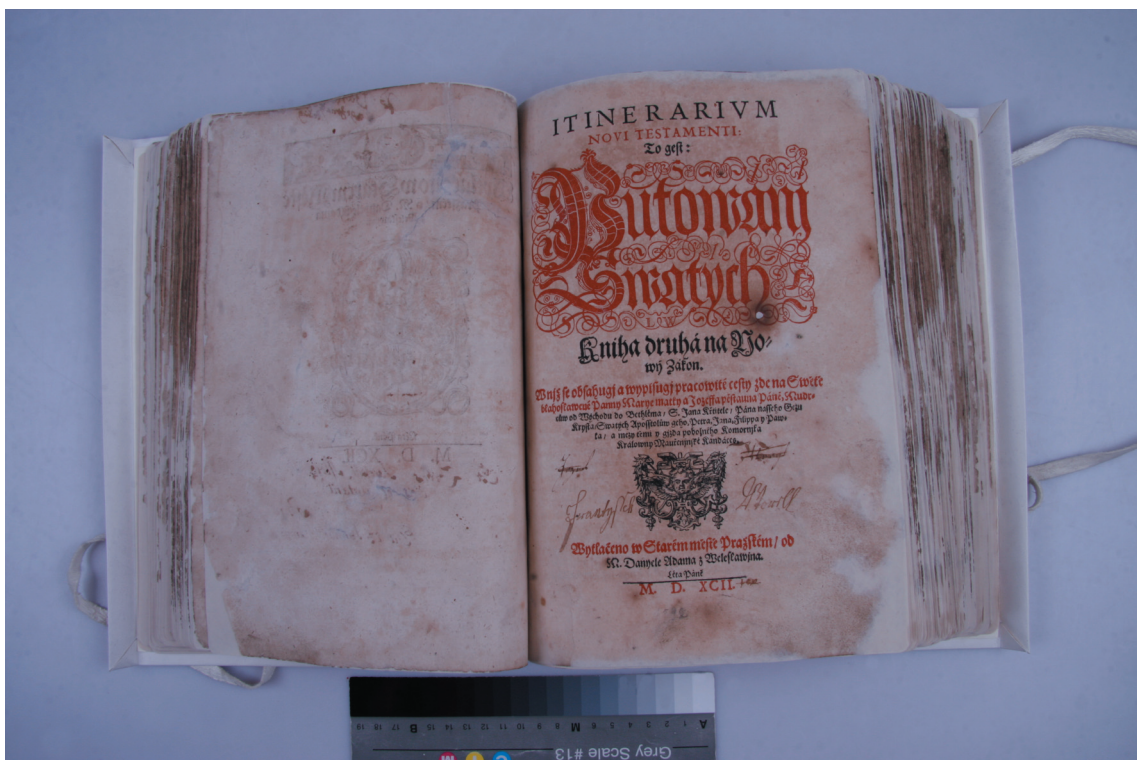 ITINERARIVM
NOVI TESTAMENTI:
To gest:
Putowanij
Swatych
Kniha druhá na No-
wý Zákon.
W nijž se obsahugj a wypisugj pracowité cesty zde na Swětě
blahoslawené Panny Marye matky a Jozeffa pěstauna Páně, Mudr-
cůw od Wýchodu do Bethléma/ S. Jana Křtitele/ Pána nasseho Gezu
Krysta/ Swatých Aposstolůw geho, Petra, Jana, Filippa y Paw-
la/ a mezy tjmi y gjzda pobožného Komornjka
Králowny Mauřenjnské Kandáces.
Wytlačeno w Starém městě Pražském/ od
M. Danyele Adama z Weleslawjna.
Léta Páně
M. D. XCII.
M. D. XCII.
A 1 2 3 4 5 6 M 8 9 10 11 12 13 14 15 B 17 18 19
Grey Scale #13
C Y M